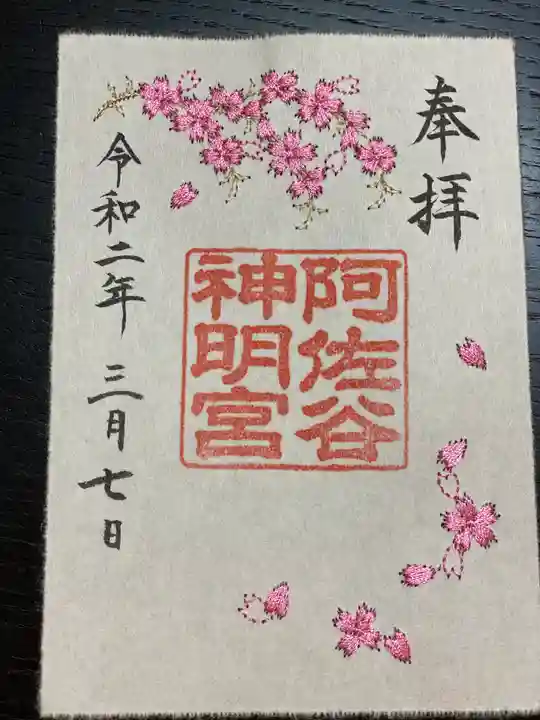 奉拝
阿佐谷
神明宮
令和二年 三月七日